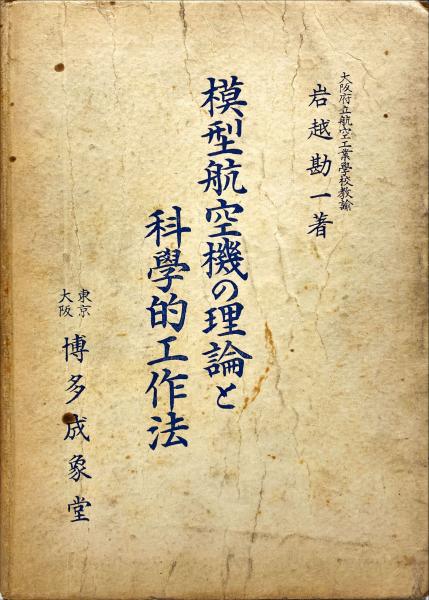 大阪府立航空工業學校教諭
岩越勘一著
模型航空機の理論と
科學的工作法
東京
大阪
博多成象堂